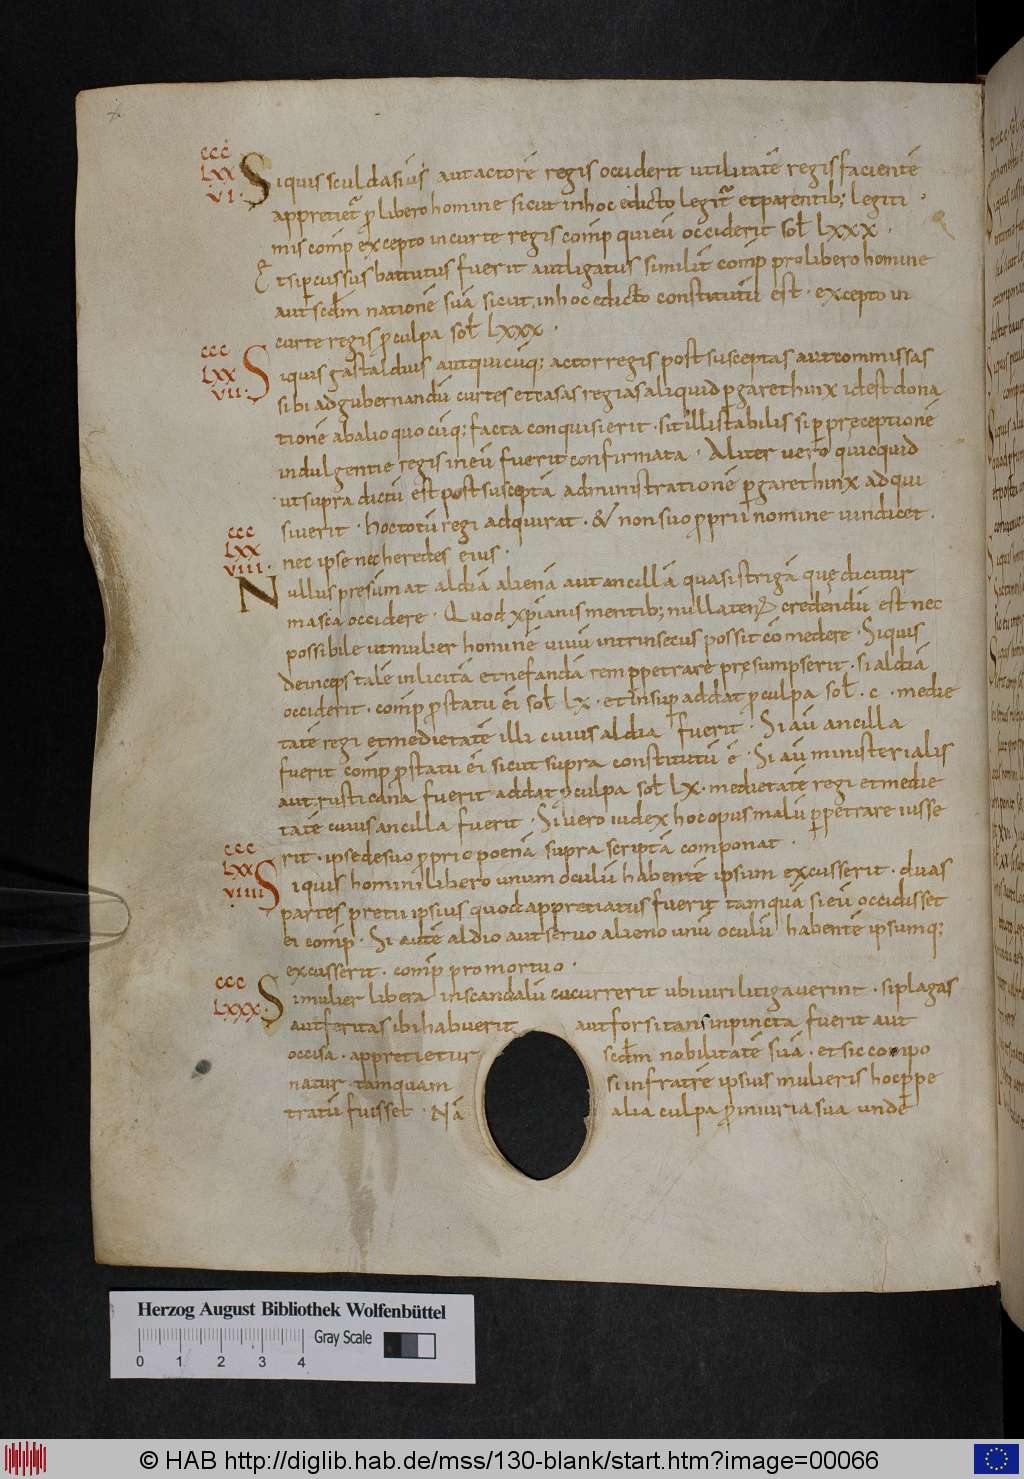 ccc
LXX
VI·
Siquis sculdasius aut actorē regis occiderit utilitatē regis facientē
appretiet̄ ꝓ libero homine sicut in hoc edicto legit̄ et parentib; legiti
mis comp̄ excepto in curte regis comp̄ qui eū occiderit sol̄ LXXX·
Et si p̄cussus battutus fuerit aut ligatus similit̄ comp̄ pro libero homine
aut scd̄m nationē suā sicut in hoc edicto constitutū est· excepto in
curte regis ꝓ culpa sol̄ LXXX·
ccc
LXX
VII·
Siquis gastaldius aut quicūq; actor regis post susceptas aut commissas
sibi ad gubernandū curtes et casas regias aliquid p garethinx id est dona
tionē ab alio quocūq; facta conquisierit· sit illi stabilis si ꝑ preceptionē
indulgentie regis in eū fuerit confirmata· Aliter vero quicquid
ut supra dictū est post susceptā administrationē ꝑ garethinx adqui
siuerit· hoc totū regi adquirat· & non suo ꝓprii nomine uindicet·
nec ipse nec heredes eius·
ccc
LXX
VIII·
Nullus presumat aldiā alienā aut ancillā quasi strigā quę dicitur
masca occidere· Quod xp̄ianis mentib; nullaten⁹ credendū est nec
possibile ut mulier hominē uiuū intrinsecus possit comedere· Siquis
deinceps talē inlicitā et nefandā rem ꝑpetrare presumpserit· si aldiā
occiderit· comp̄ ꝓ statu ei sol̄ LX· et insuꝑ addat ꝓ culpa sol̄· c· medie
tatē regi et medietatē illi cuius aldia fuerit· Si aū ancilla
fuerit comp̄ ꝓ statu ei sicut supra constitutū ē· Si aū ministerialis
aut rusticana fuerit addat ꝓ culpa sol̄ LX· medietatē regi et medie
tatē cuius ancilla fuerit· Si uero iudex hoc opus malū ꝑpetrare iusse
rit· ipse de suo ꝓprio poenā supra scriptā componat·
ccc
LXX
VIIII
Siquis homini libero unum oculū habentē ipsum excusserit· duas
partes pretii ipsius quod appretiatus fuerit tamquā si eū occidisset
ei comp̄· Si autē aldio aut seruo alieno unū oculū habentē ipsumq;
excusserit· comp̄ pro mortuo·
ccc
LXXX·
Si mulier libera in scandalū cucurrerit ubi uiri litigauerint· si plagas
aut feritas ibi habuerit aut forsitans inpincta fuerit aut
occisa· appretietur scd̄m nobilitatē suā· et sic compo
natur· tamquam si in fratrē ipsius mulieris hoc ꝑpe
tratū fuisset· Nā alia culpa ꝓ iniuria sua unde
Herzog August Bibliothek Wolfenbüttel
Gray Scale
0 1 2 3 4
© HAB http://diglib.hab.de/mss/130-blank/start.htm?image=00066